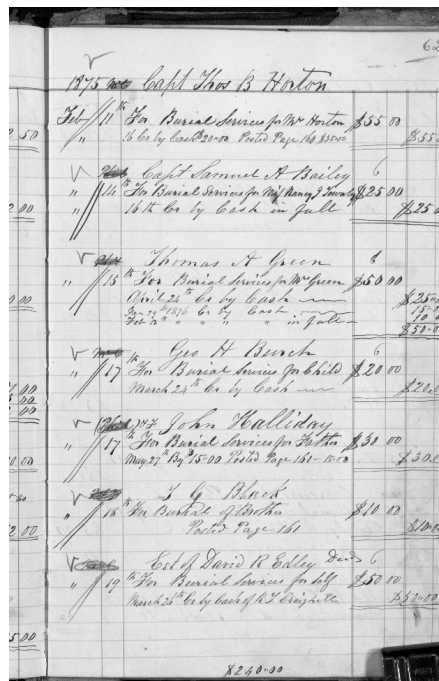 62
1875 Capt Thos B Horton
Feb 11th For Burial Services for Mr Horton $55 00
" 16 Cr by Cash $20-00 Posted Page 160 $35-00 $55
Capt Samuel A Bailey 6
" 14th For Burial Services for Nancy J $25 00
" 16th Cr by Cash in full $25
Thomas A Green
" 15th For Burial Services for Mr Green $50 00
April 24th Cr by Cash $25
1876 Cr by Cash 15
Feb 12th " " " " in full 10
$50
Geo H Burch 6
" 17th For Burial Services for Child $20 00
March 24th Cr by Cash $20
John Halliday
" 17th For Burial Services for Father $30 00
May 27th By $15-00 Posted Page 161 - 15-00 $30
Black
" 18th For Burial of Brother $10 00
Posted Page 161 $10-00
Est of David R Edley Decd 6
" 19th For Burial Services for Self $50 00
March 26th Cr by Cash of $50-00
$240-00